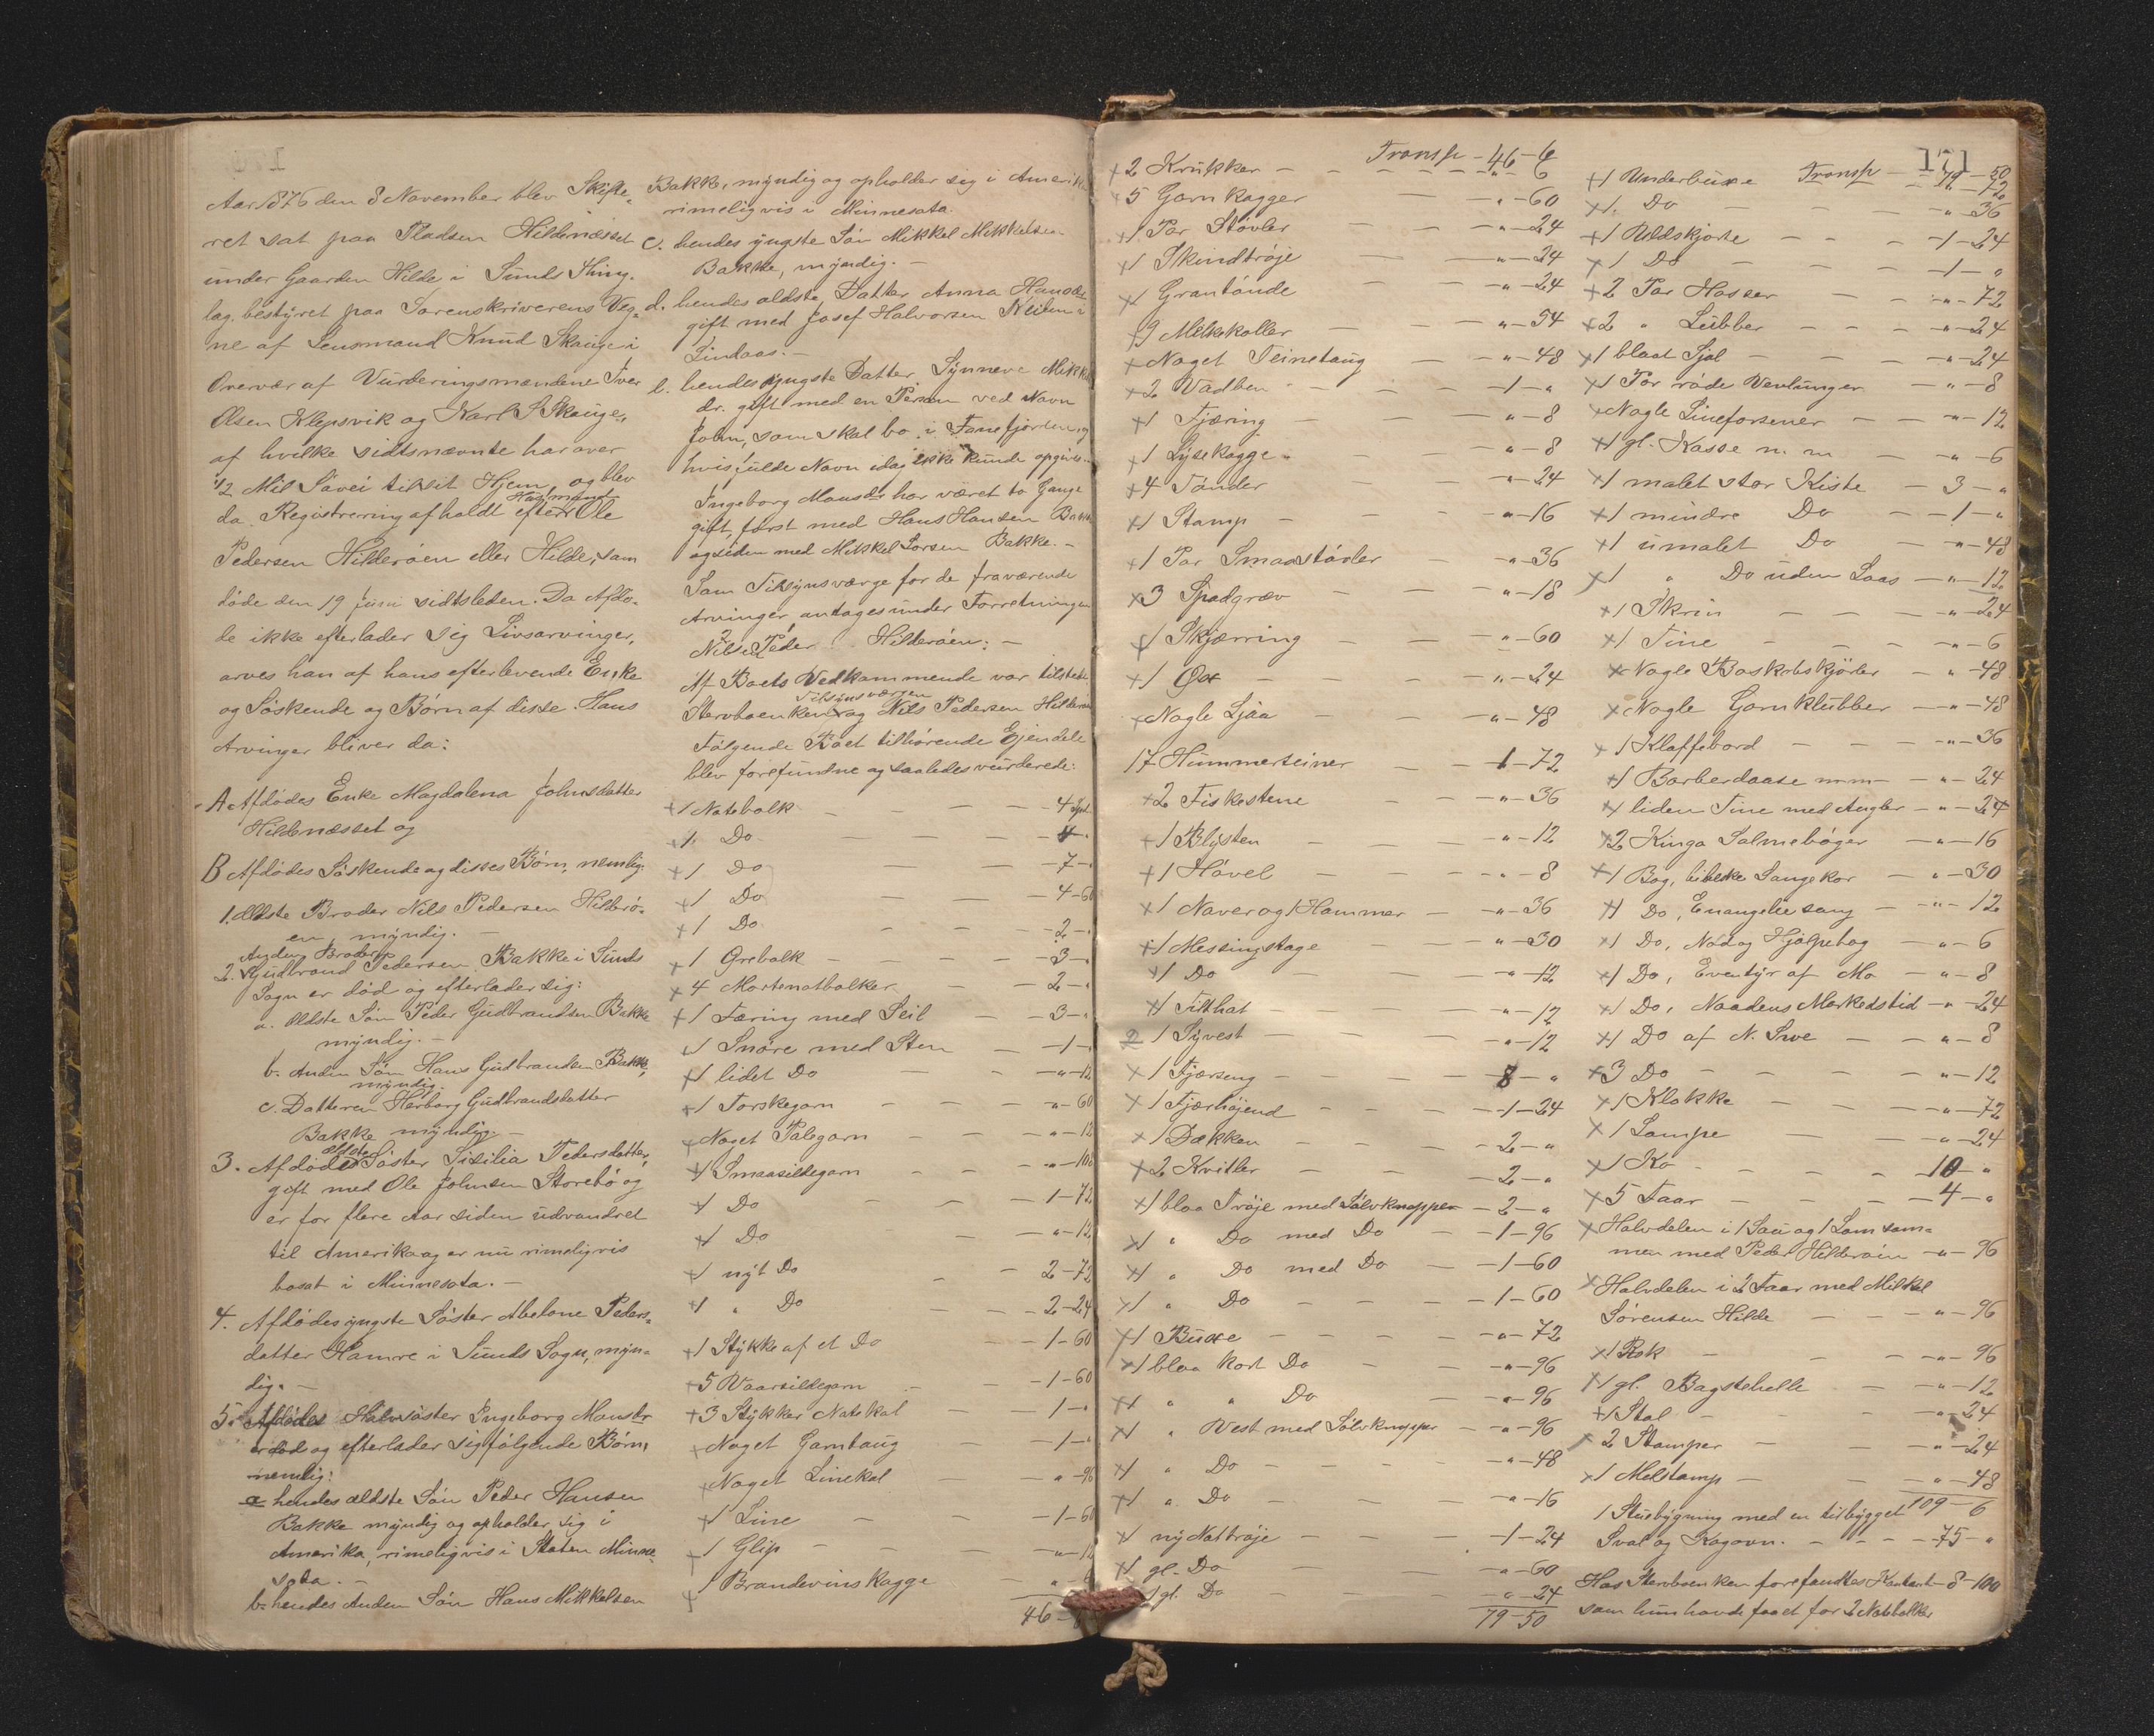 Aar 1876 den 8 November blev Skifte-
ret sat paa Pladsen Hildenæsset
under Gaarden Hilde i Sunds Thing-
lag, bestyret paa Sorenskriverens Veg-
ne af Lensmand Knud Skauge i
Overvær af Vurderingsmændene Iver
Olsen Klepsvik og Karl S Skauge,
af hvilke sidtsnævnte har over
1/2 Mil Søvei til sit Hjem, og blev
da Registrering afholdt efter Husmand Ole
Pedersen Hilderøen eller Hilde, som
døde den 19 Juni sidtsleden. Da Afdø-
de ikke efterlader sig Livsarvinger,
arves han af hans efterlevende Enke
og Søskende og Børn af disse. Hans
Arvinger bliver da:
A Afdødes Enke Magdalena Johnsdatter
Hildenæsset og
B Afdødes Søskende og disses Børn, nemlig:
1. Ældste Broder Nils Pedersen Hilderø-
en, myndig. —
2. Anden Broder Gudbrand Pedersen Bakke i Sunds
Sogn er død og efterlader sig:
a. Ældste Søn Peder Gudbrandsen Bakke
myndig. —
b. Anden Søn Hans Gudbrandsen Bakke,
myndig.
c. Datteren Herborg Gudbrandsdatter
Bakke myndig. —
3. Afdødes ældste Søster Sisilia Pedersdatter,
gift med Ole Johnsen Storebø og
er for flere Aar siden udvandret
til Amerika og er nu rimeligvis
bosat i Minnesota. —
4. Afdødes yngste Søster Abelone Peders-
datter Hamre i Sunds Sogn, myn-
dig. —
5. Afdødes Halvsøster Ingeborg Monsdr
er død og efterlader sig følgende Børn,
nemlig:
a hendes ældste Søn Peder Hansen
Bakke myndig og opholder sig i
Amerika, rimeligvis i Staten Minne-
sota. —
b. hendes Anden Søn Hans Mikkelsen
Bakke, myndig og opholder sig i Amerika
rimeligvis i Minnesota.
c. hendes yngste Søn Mikkel Mikkelsen
Bakke, myndig. —
d. hendes ældste Datter Anna Hansdr
gift med Josef Halvorsen i
Lindaas. —
e. hendes yngste Datter Synneve Mikkels
dr. gift med en Person ved Navn
John, som skal bo i Fanefjorden, og
hvis fulde Navn idag ikke kunde opgives. —
Ingeborg Monsdr har været to Gange
gift, først med Hans Hansen Bakke
og siden med Mikkel Larsen Bakke. —
Som Tilsynsværge for de fraværende
Arvinger, antages under Forretningen
Nils Peder Hilderøen. —
Af Boets Vedkommende var tilstede
Stervboenken, Tilsynsværgen og Nils Pedersen Hilderøen
Følgende Boet tilhørende Ejendele
blev forefundne og saaledes vurderede:
1 Notebolk — 4 Spd
1 Do — 4 - "
1 Do — 7 - "
1 Do — 4 - 60
1 Do — 2 - "
1 Ørebolk — 3 - "
4 Mortenotbolker — 2 - "
1 Færing med Seil — 3 - "
1 Snøre med Sten — 1 - "
1 lidet Do — " - 12
1 Torskegarn — " - 60
Noget Palegarn — " - 12
1 Smaasildegarn — " - 108
1 Do — 1 - 72
1 Do — " - 12
1 nyt Do — 2 - 72
1 " Do — 2 - 24
1 Stykke af et Do — 1 - 60
5 Vaarsildegarn — 1 - 60
3 Stykker Notekal — 1 - "
Noget Garntaug — 1 - "
Noget Linekal — " - 96
1 Line — 1 - 60
1 Glip — " - 12
1 Brændevins Kagge
46 -
Transp - 46 - 6
2 Krukker — " - 6
5 Garnkagger — " - 60
1 Par Støvler — " - 24
1 Skindtrøje — " - 24
1 Grantønde — " - 24
9 Melkekoller — " - 54
Noget Teinetaug — " - 48
2 Vadben — 1 - "
1 Tjæring — " - 8
1 Lysekagge — " - 8
4 Tønder — " - 24
1 Stamp — " - 16
1 Par Smaastøvler — " - 36
3 Spadgrev — " - 18
1 Skjærring — " - 60
1 Øx — " - 24
Nogle Ljaa — " - 48
17 Hummerteiner — 1 - 72
2 Fiskestene — " - 36
1 Blysten — " - 12
1 Høvel — " - 8
1 Naver og 1 Hammer — " - 36
1 Messingstage — " - 30
1 Do — " - 12
1 Filthat — " - 12
1 Syvest — " - 12
1 Fjærseng — 8 - "
1 Fjærhøjend — 1 - 24
1 Dækken — 2 - "
2 Kvitler — 2 - "
1 blaa Trøje med Sølvknapper — 2 - "
1 " Do med Do — 1 - 96
1 " Do med Do — 1 - 60
1 " Do — 1 - 60
1 Buxe — " - 72
1 blaa kort Do — " - 96
1 " " Do — " - 96
1 " Vest med Sølvknapper — " - 96
1 " Do — " - 48
1 " Do — " - 16
1 ny Nattrøje — 1 - 24
1 gl. Do — " - 60
1 gl. Do — " - 24
79 - 50
171
Transp 79 - 50
1 Underbuxe — " - 72
1 Do — " - 36
1 Uldskjorte — 1 - 24
1 Do — 1 - "
2 Par Hosser — " - 72
2 " Lubber — " - 24
1 blaat Sjal — " - 24
1 Par røde Venlunger — " - 8
Nogle Lineforsener — " - 12
1 gl. Kasse m. m — " - 6
1 malet stor Kiste — 3 - "
1 mindre Do — 1 - "
1 umalet Do — " - 48
1 " Do uden Laas — " - 12
1 Skrin — " - 24
1 Tine — " - 6
Nogle Boskabskjørler — " - 48
Nogle Garnklubber — " - 48
1 Klaffebord — " - 36
1 Barberdaase m.m — " - 24
1 liden Tine med Angler — " - 24
2 Kinga Salmebøger — " - 16
1 Bog, bibelske Sangekor — " - 30
1 Do, Evangelie sang — " - 12
1 Do, Nød og Hjælpebog — " - 6
1 Do, Eventyr af Mo — " - 8
1 Do, Naadens Markedstid — " - 24
1 Do af N. Swe — " - 8
3 Do — " - 12
1 Klokke — " - 72
1 Lampe — " - 24
1 Ko — 10 - "
5 Faar — 4 - "
Halvdelen i 1 Sau og 1 Lam sam-
men med Peder Hilderøen — " - 96
Halvdelen i 2 Faar med Mikkel
Sørensen Hilde — " - 96
1 Rok — " - 96
1 gl. Bagstehelle — " - 12
1 Stol — " - 24
2 Stamper — " - 24
1 Melstamp — " - 48
109 - 6
1 Stuebygning med en tilbygget
Sval og Kogovn. — 75 - "
Hos Stervboenken forefandtes Kontant - 8 - 100
som hun havde faaet for 2 Notebolker